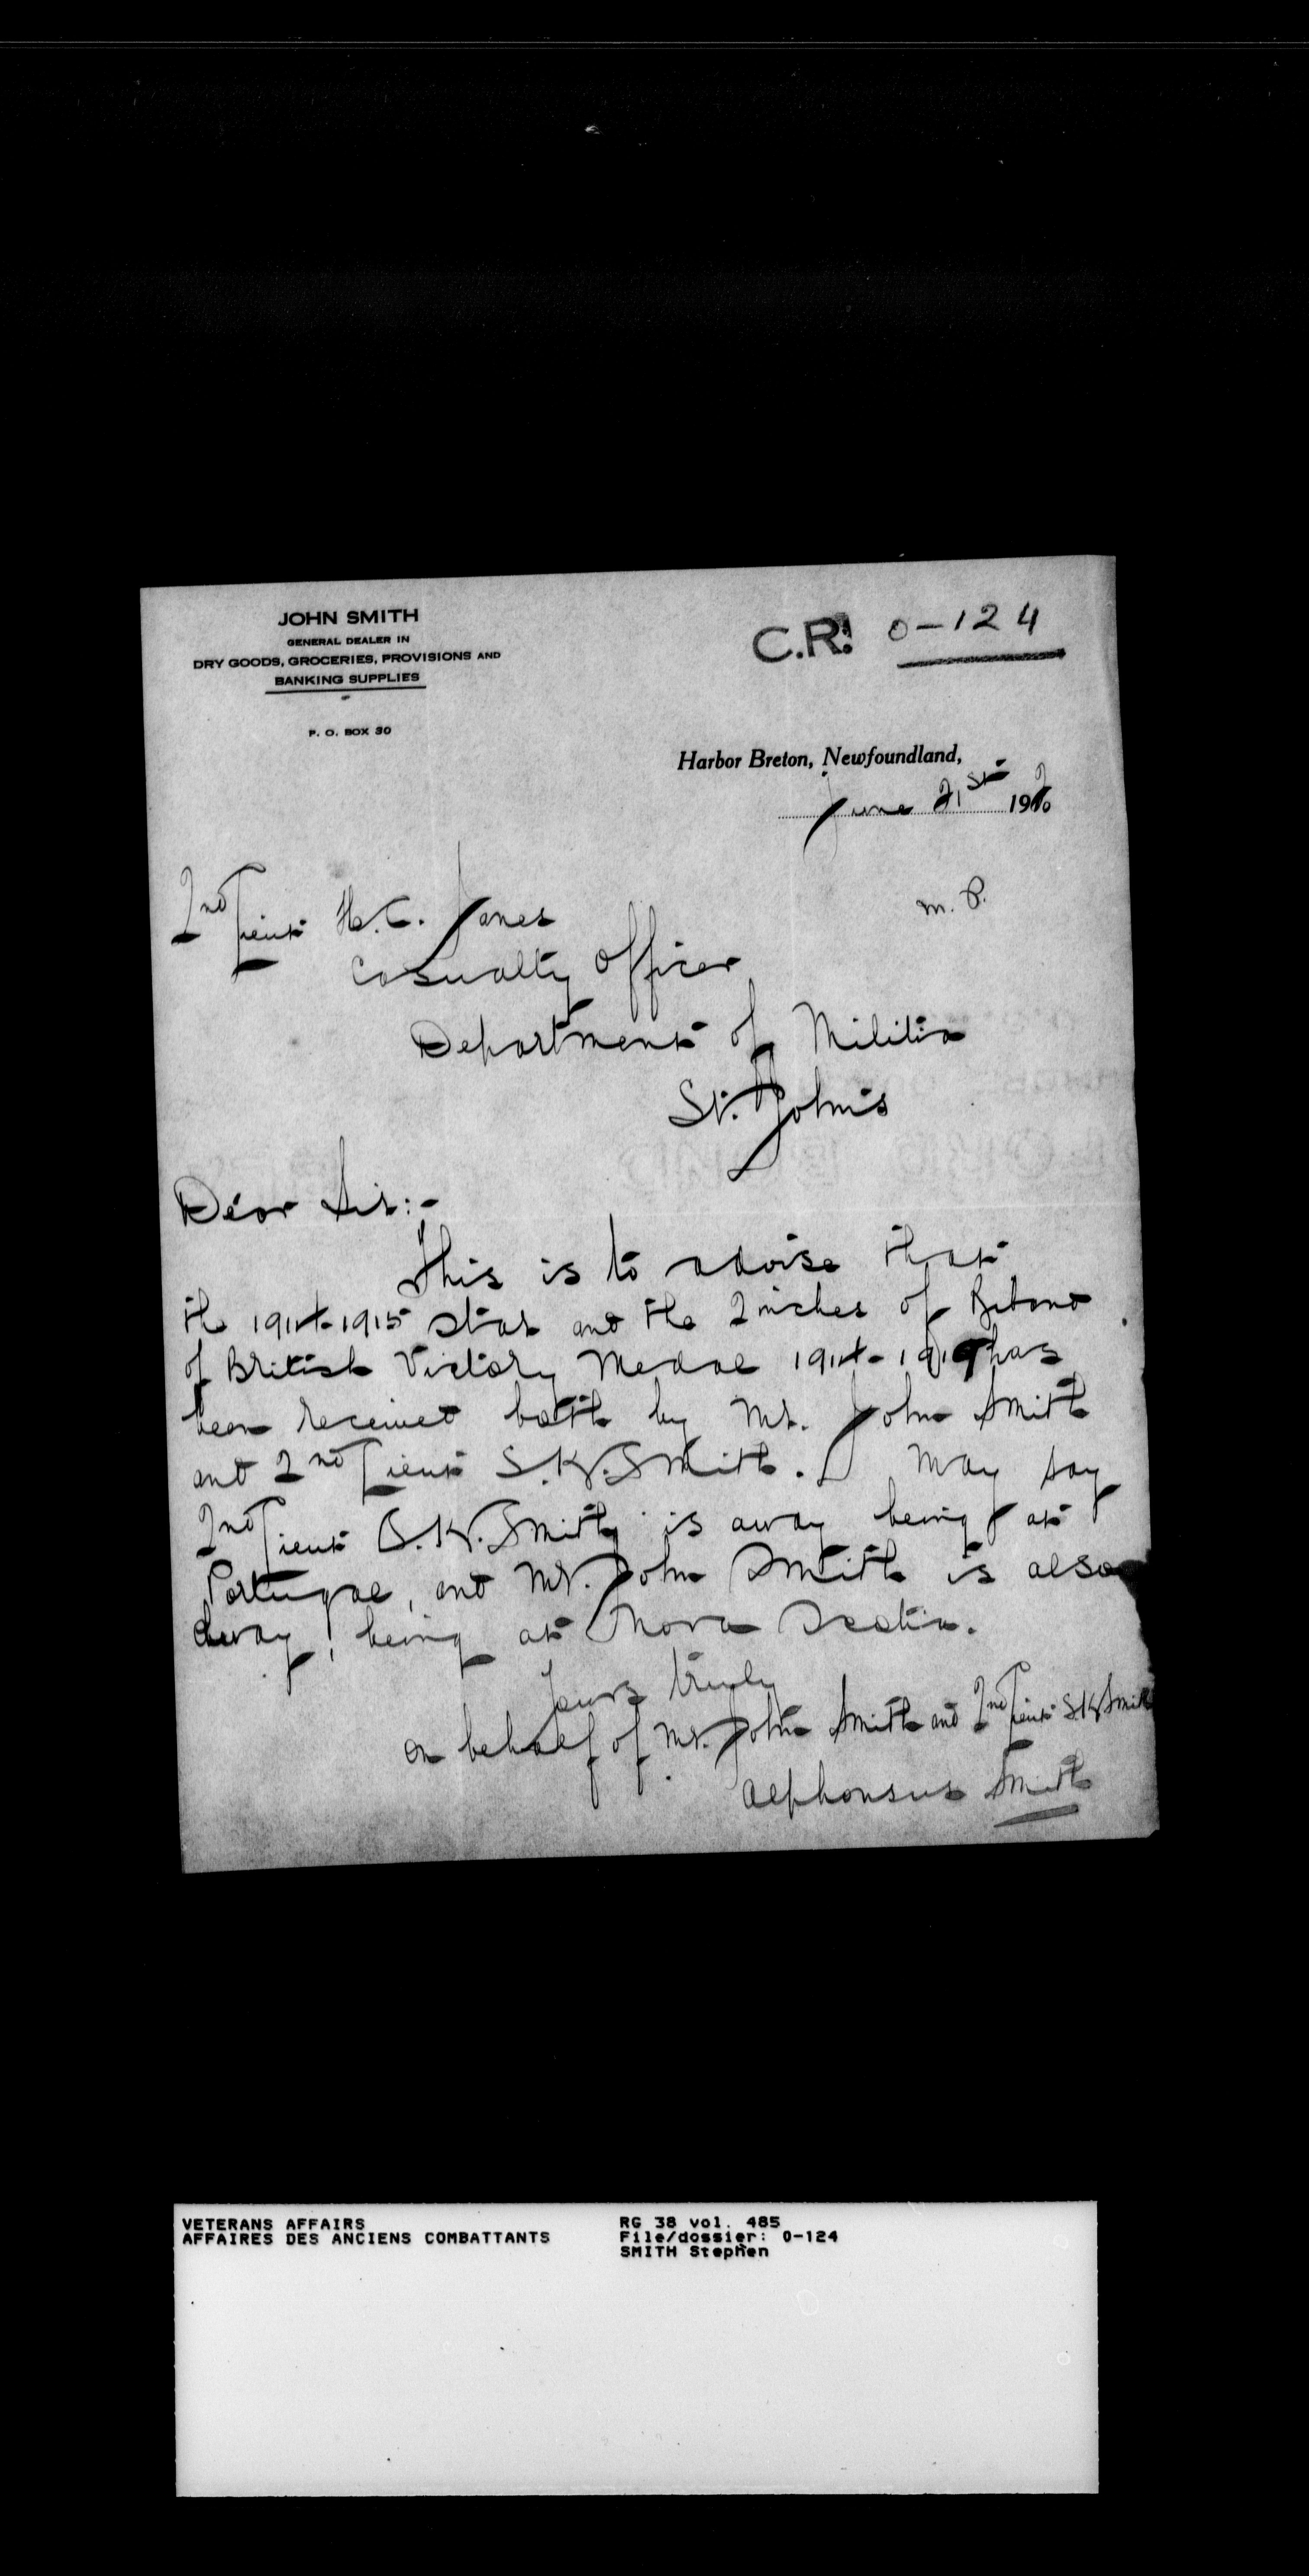 JOHN SMITH
GENERAL DEALER IN
DRY GOODS, GROCERIES, PROVISIONS AND
BANKING SUPPLIES
P. O. BOX 30
C.R. 0-124
Harbor Breton, Newfoundland,
June 21st 1920
m. P.
2nd Lieut H.C. Janes
Casualty Officer
Department of Militia
St. John's
Dear Sir:-
This is to advise that
the 1914-1915 Star and the 2 inches of Riband
of British Victory Medal 1914-1919 has
been received both by Mr. John Smith
and 2nd Lieut S.K. Smith. I may say
2nd Lieut S.K. Smith is away being at
Portugal, and Mr. John Smith is also
away, being at Nova Scotia.
Yours truly
on behalf of Mr. John Smith and 2nd Lieut S.K. Smith
Alphonsus Smith
VETERANS AFFAIRS
AFFAIRES DES ANCIENS COMBATTANTS
RG 38 vol. 485
File/dossier: 0-124
SMITH Stephen